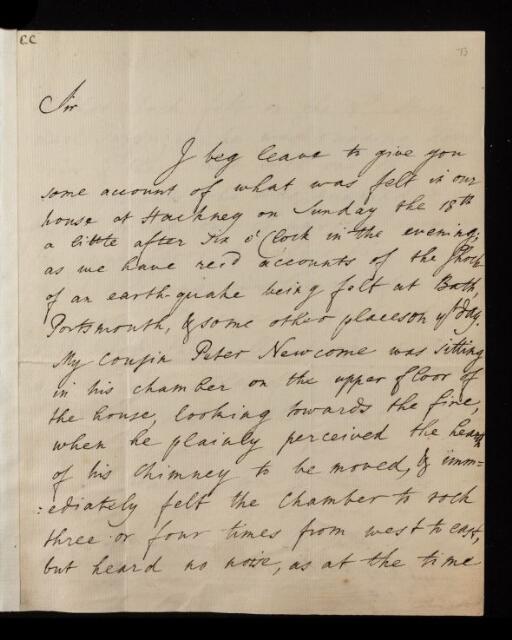 CC
73
Sir
I beg leave to give you
some account of what was felt in our
house at Hackney on Sunday the 18th
a little after Six o'Clock in the evening;
as we have rec'd accounts of the Shock
of an earth-quake being felt at Bath,
Portsmouth, & some other places on yt day.
My Cousin Peter Newcome was sitting
in his chamber on the upper floor of
the house, looking towards the fire,
when he plainly perceived the hearth
of his Chimney to be moved, & imm=
=ediately felt the Chamber to rock
three or four times from west to east,
but heard no noise, as at the time